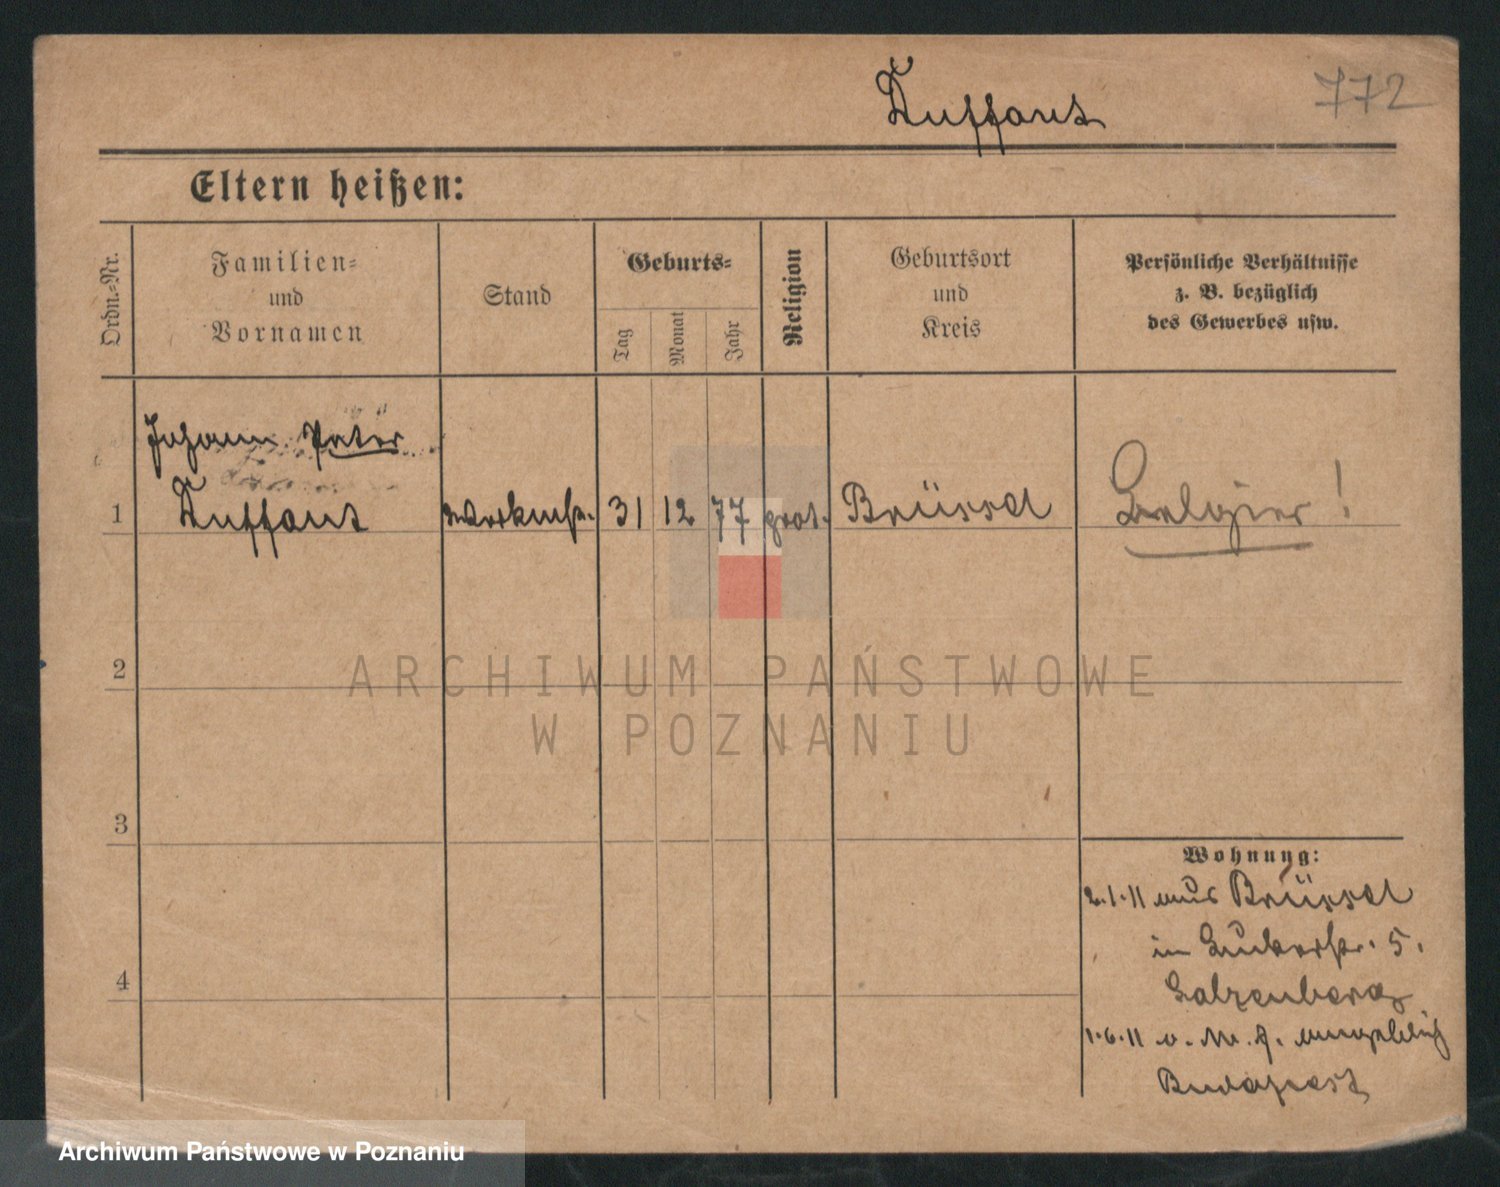 772
Eltern heißen:
Ordn.-Nr.
Familien-
und
Vornamen
Stand
Geburts-
Tag
Monat
Jahr
Religion
Geburtsort
und
Kreis
Persönliche Verhältnisse
z. B. bezüglich
des Gewerbes usw.
Johann Peter
1 31 12 77 Brüssel Belgier!
2
3
4
Wohnung:
2.1.11 aus Brüssel
in 5.
1.6.11 angeblich
Budapest
ARCHIWUM PAŃSTWOWE
W POZNANIU
Archiwum Państwowe w Poznaniu